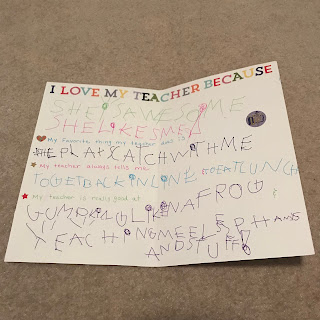 I LOVE MY TEACHER BECAUSE
SHE'S AWESOME
SHE LIKES ME
My favorite thing my teacher and I
PLAY CATCH WITH ME
My teacher always tells me
TO GET BACK IN LINE TO EAT LUNCH
My teacher is really good at
JUMPING LIKE A FROG
TEACHING ME ELEPHANS
AND STUFF!